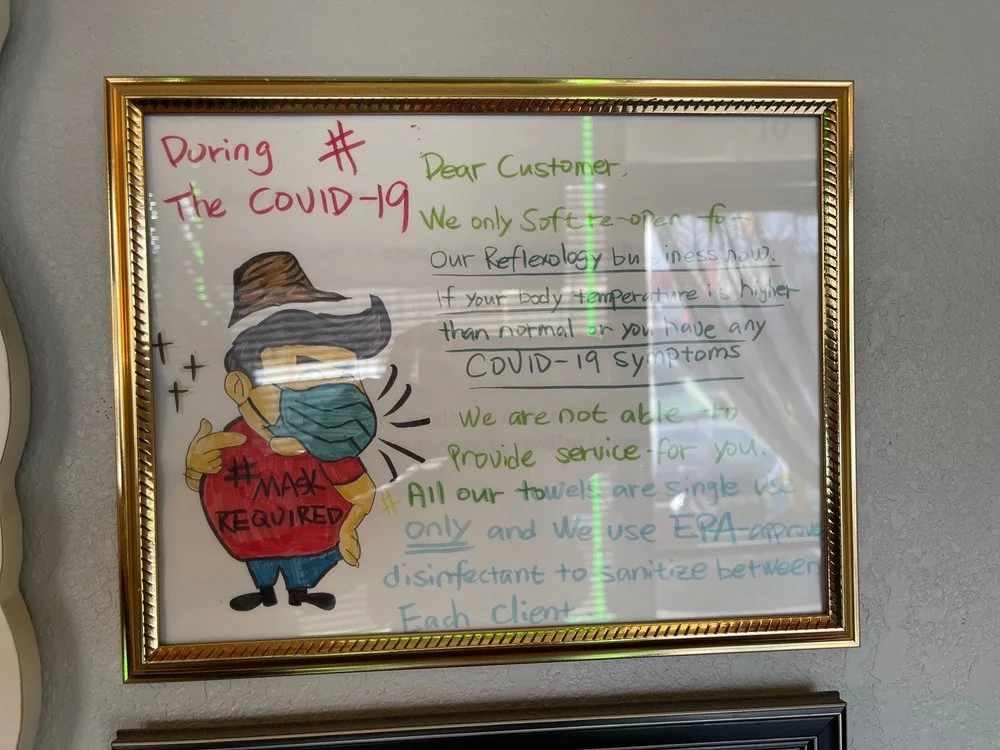 During #
The COVID-19
Dear Customer,
We only Soft re-open for
our Reflexology business now.
If your body temperature is higher
than normal or you have any
COVID-19 symptoms
We are not able to
Provide service for you.
# All our towels are single use
only and We use EPA-approve
disinfectant to sanitize between
Each Client.
#MASK
REQUIRED